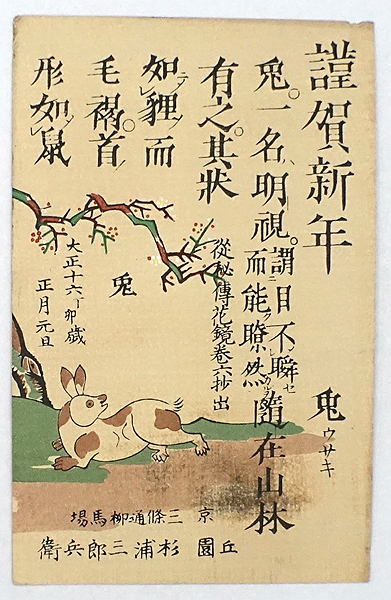 謹賀新年
兎 ウサキ
兎。一名、明視。謂目不瞬セ而能瞭然隨在山林
有之。其狀
如貍而
毛褐。首
形如鼠
從秘傳花鏡巻六抄出
兎
大正十六丁卯歳
正月元旦
京 三條通柳馬場
丘園 杉浦三郎兵衛